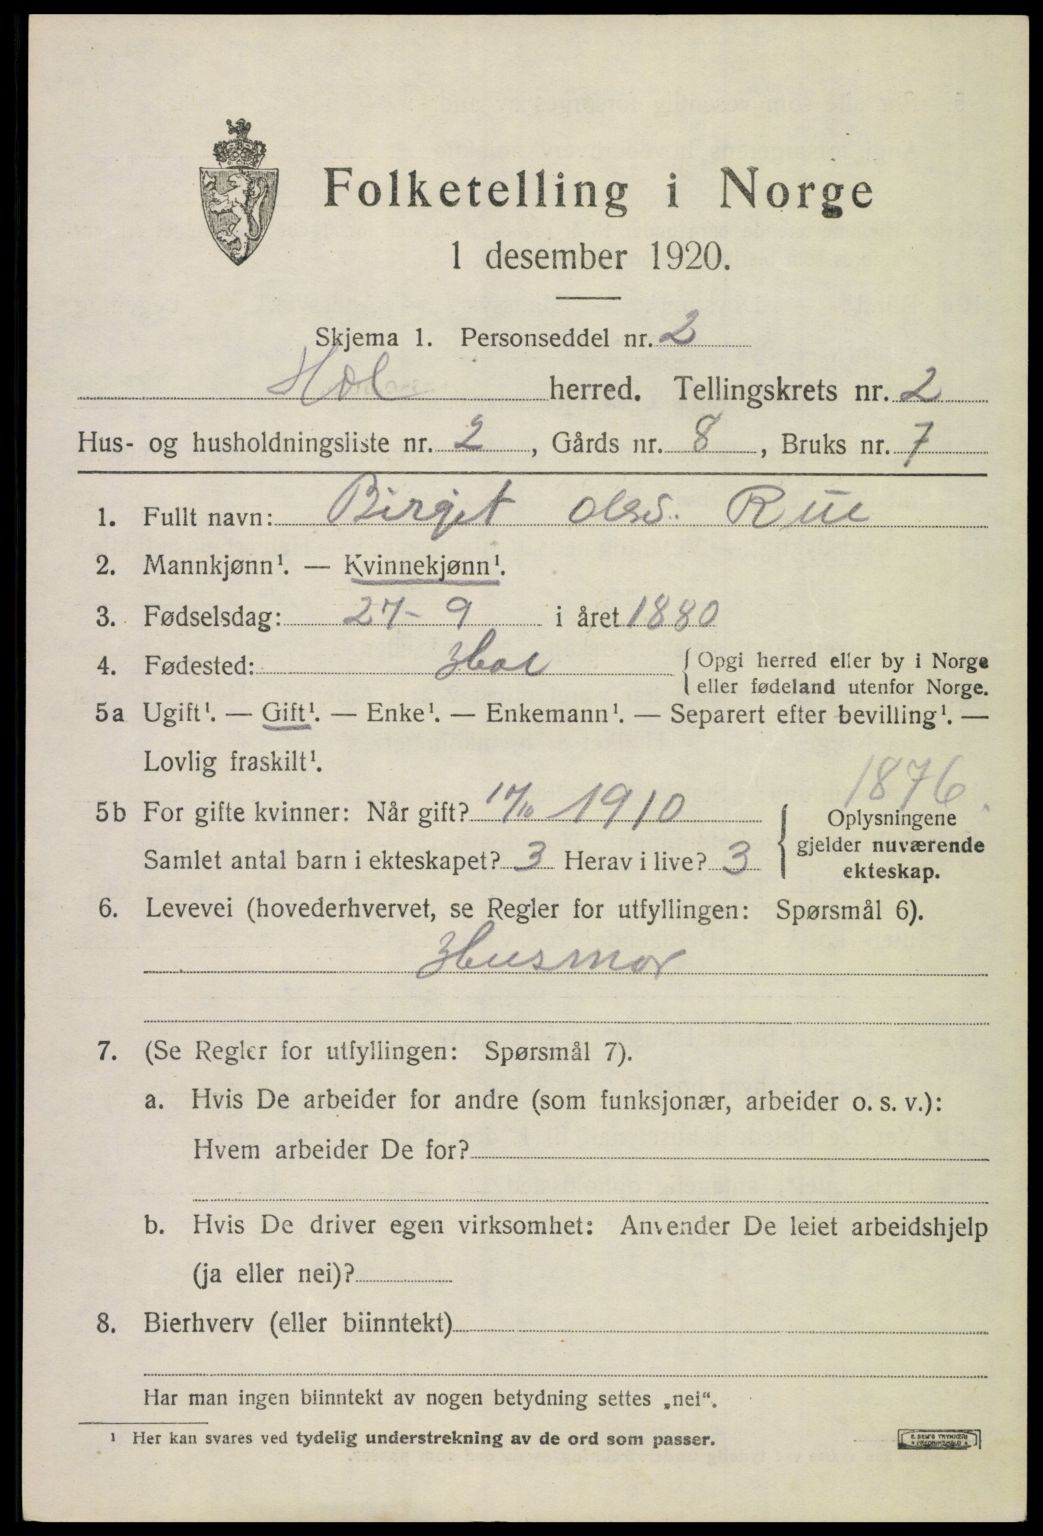 Folketelling i Norge
1 desember 1920.
Skjema 1. Personseddel nr. 2
Hol herred. Tellingskrets nr. 2
Hus- og husholdningsliste nr. 2, Gårds nr. 8, Bruks nr. 7
1. Fullt navn: Birgit Olsd. Rue
2. Mannkjønn¹. — Kvinnekjønn¹.
3. Fødselsdag: 27-9 i året 1880
4. Fødested: Hol { Opgi herred eller by i Norge
eller fødeland utenfor Norge.
5a Ugift¹. — Gift¹. — Enke¹. — Enkemann¹. — Separert efter bevilling¹. —
Lovlig fraskilt¹.
1876
5b For gifte kvinner: Når gift? 17/10 1910 { Oplysningene
gjelder nuværende
ekteskap.
Samlet antal barn i ekteskapet? 3 Herav i live? 3
6. Levevei (hovederhvervet, se Regler for utfyllingen: Spørsmål 6).
Husmor
7. (Se Regler for utfyllingen: Spørsmål 7).
a. Hvis De arbeider for andre (som funksjonær, arbeider o. s. v.):
Hvem arbeider De for?
b. Hvis De driver egen virksomhet: Anvender De leiet arbeidshjelp
(ja eller nei)?
8. Bierhverv (eller biinntekt)
Har man ingen biinntekt av nogen betydning settes „nei“.
¹ Her kan svares ved tydelig understrekning av de ord som passer.